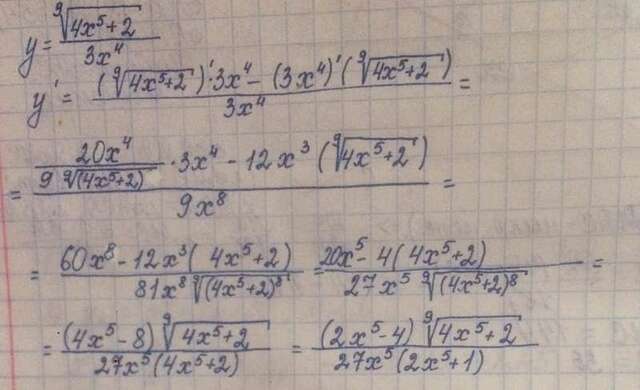 y = \frac{\sqrt[9]{4x^5+2}}{3x^4}
y' = \frac{(\sqrt[9]{4x^5+2})' \cdot 3x^4 - (3x^4)' (\sqrt[9]{4x^5+2})}{3x^4} =
= \frac{\frac{20x^4}{9 \sqrt[9]{(4x^5+2)}} \cdot 3x^4 - 12x^3 (\sqrt[9]{4x^5+2})}{9x^8} =
= \frac{60x^8 - 12x^3 (4x^5+2)}{81x^8 \sqrt[9]{(4x^5+2)^8}} = \frac{20x^5 - 4(4x^5+2)}{27x^5 \sqrt[9]{(4x^5+2)^8}} =
= \frac{(4x^5-8) \sqrt[9]{4x^5+2}}{27x^5(4x^5+2)} = \frac{(2x^5-4) \sqrt[9]{4x^5+2}}{27x^5(2x^5+1)}